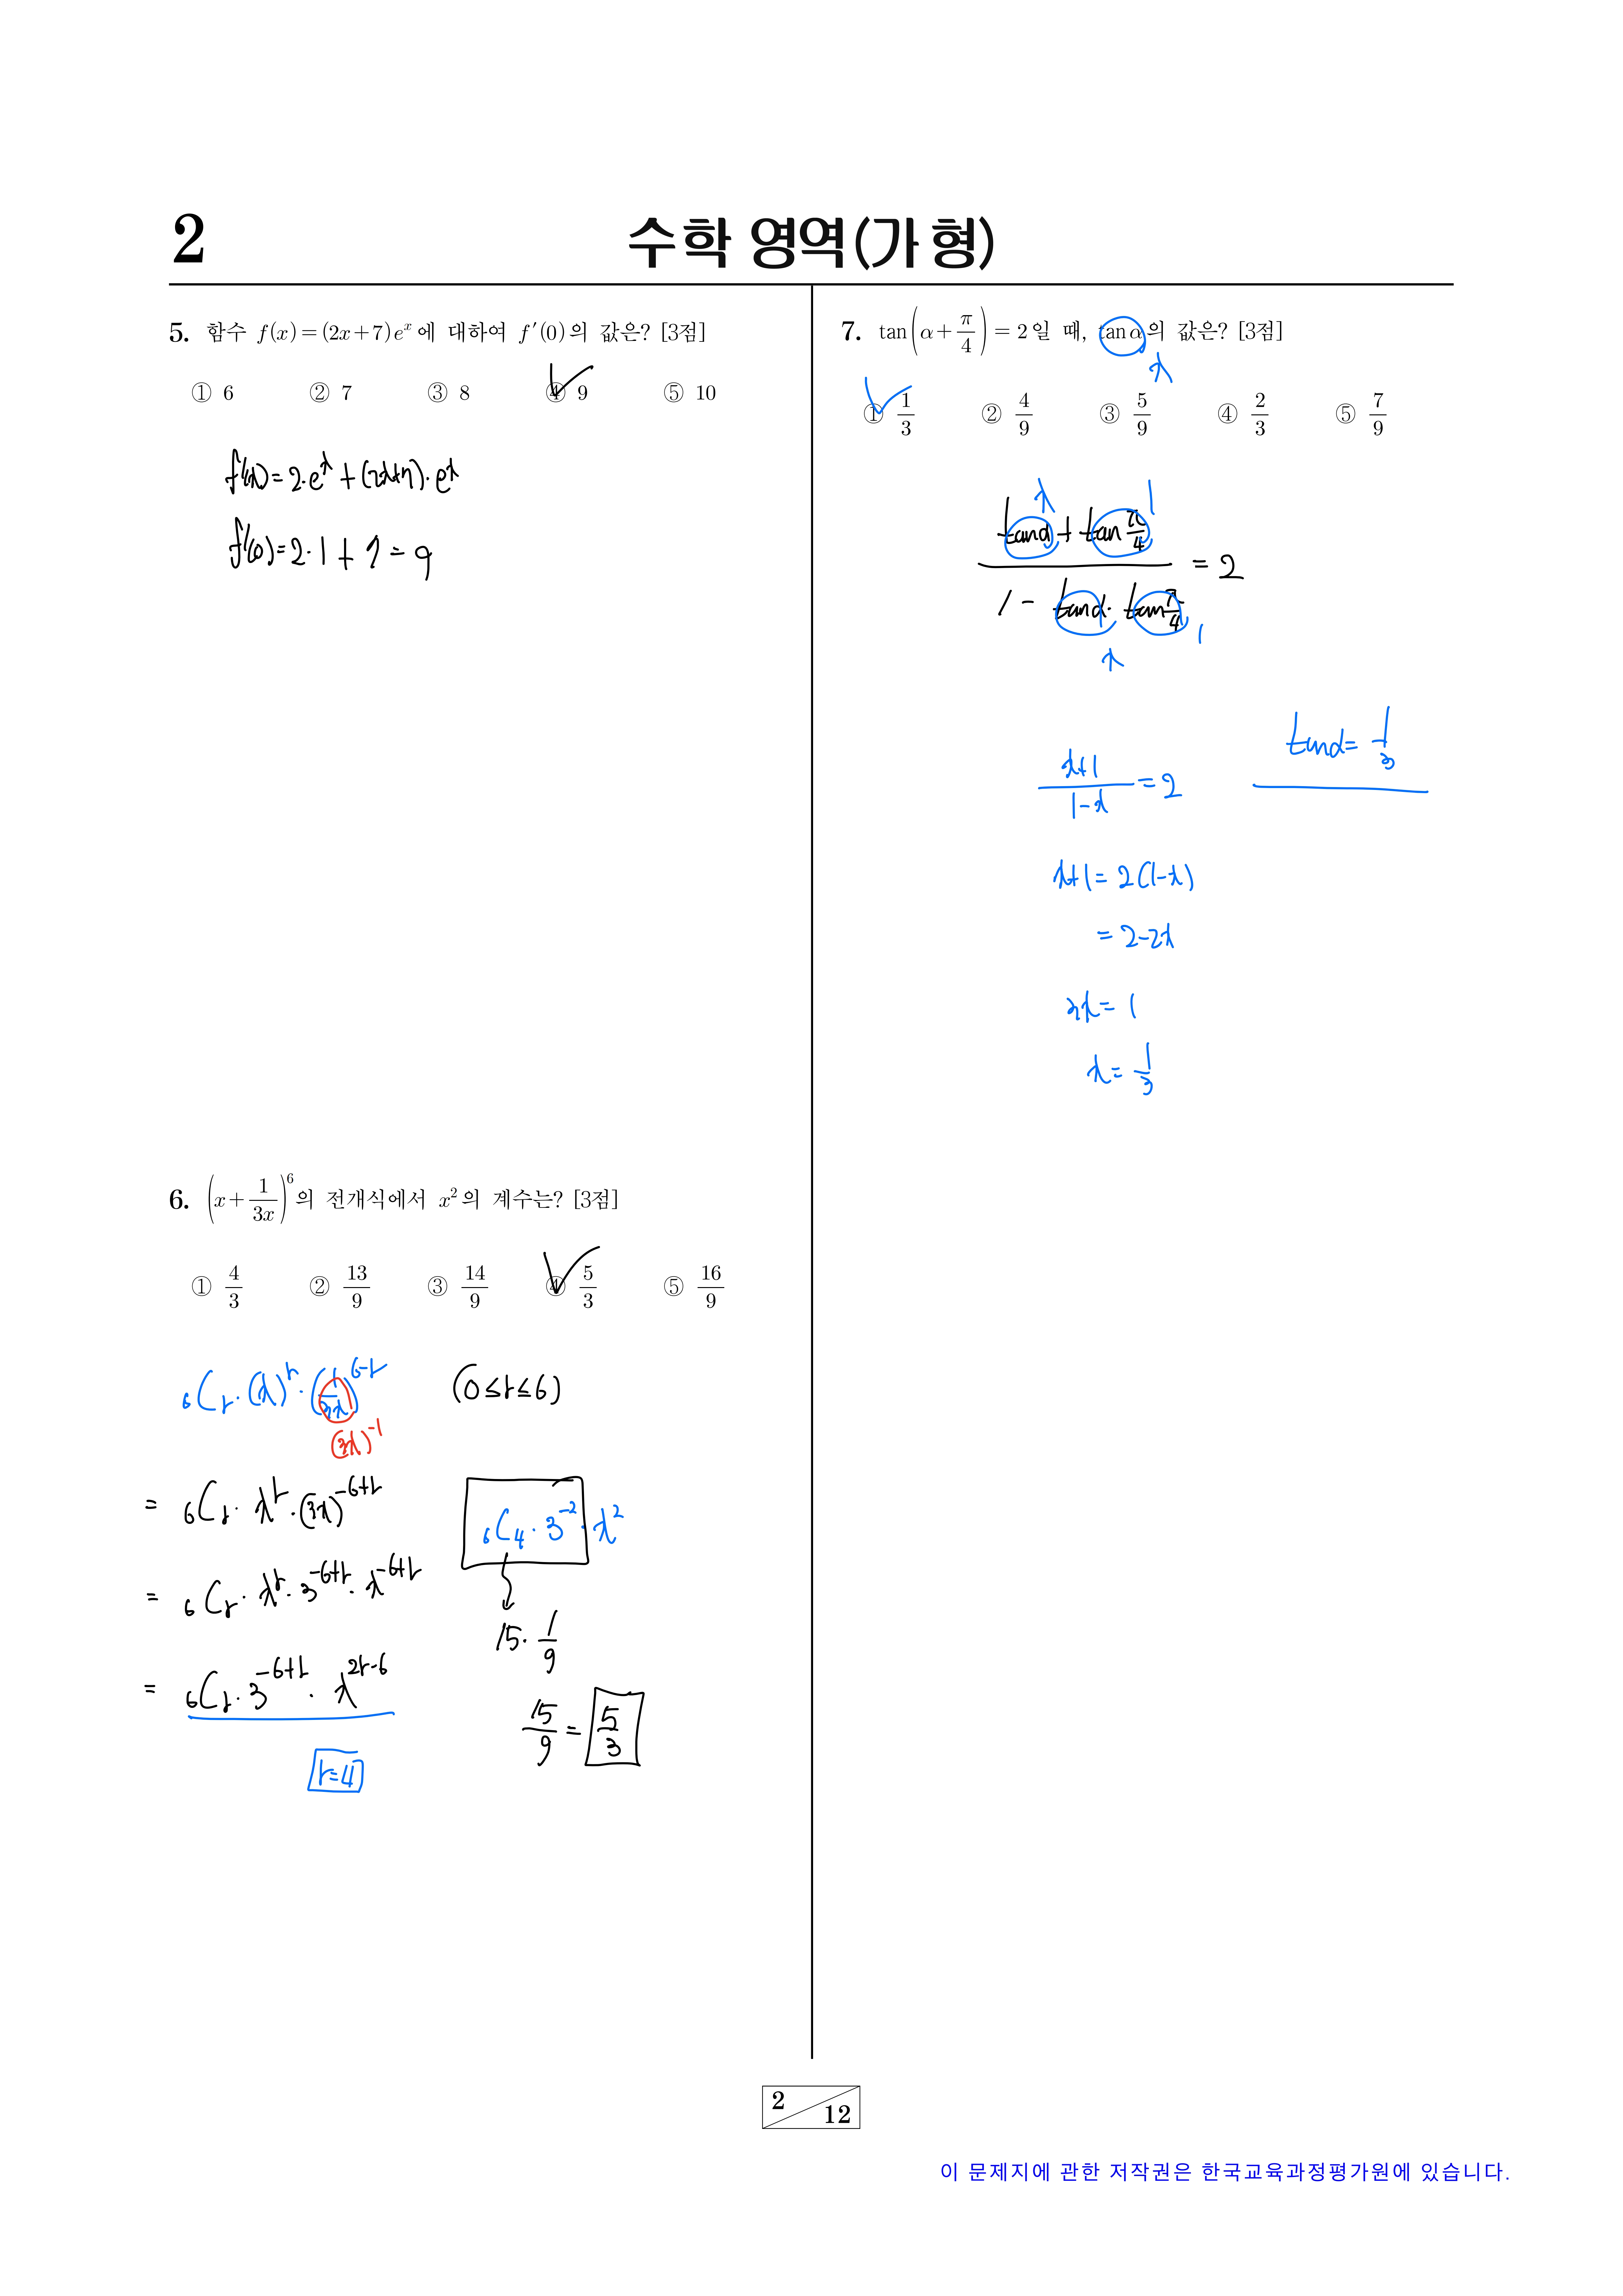 2
수학 영역(가 형)
5. 함수 f(x)=(2x+7)e^x에 대하여 f′(0)의 값은? [3점]
① 6 ② 7 ③ 8 ④ 9 ⑤ 10
f′(x)=2·e^x+(2x+7)·e^x
f′(0)=2·1+7=9
6. (x+1/(3x))^6의 전개식에서 x^2의 계수는? [3점]
① 4/3 ② 13/9 ③ 14/9 ④ 5/3 ⑤ 16/9
₆Cᵣ·(x)^r·(1/(3x))^(6-r) (0≤r≤6)
(3x)^-1
= ₆Cᵣ·x^r·(3x)^(-6+r)
= ₆Cᵣ·x^r·3^(-6+r)·x^(-6+r)
= ₆Cᵣ·3^(-6+r)·x^(2r-6)
r=4
₆C₄·3^-2·x^2
15·1/9
15/9=5/3
7. tan(α+π/4)=2일 때, tanα의 값은? [3점]
x
① 1/3 ② 4/9 ③ 5/9 ④ 2/3 ⑤ 7/9
x 1
(tanα+tan π/4)/(1-tanα·tan π/4)=2
x 1
(x+1)/(1-x)=2
tanα=1/3
x+1=2(1-x)
=2-2x
3x=1
x=1/3
2/12
이 문제지에 관한 저작권은 한국교육과정평가원에 있습니다.